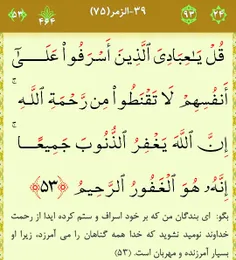 ۳۹-الزمر(۷۵)
قُلْ يَـٰعِبَادِىَ ٱلَّذِينَ أَسْرَفُوا۟ عَلَـىٰٓ
أَنفُسِهِمْ لَا تَقْنَطُوا۟ مِن رَّحْمَةِ ٱللَّهِ ۚ
إِنَّ ٱللَّهَ يَغْفِرُ ٱلذُّنُوبَ جَمِيعًا ۚ
إِنَّهُۥ هُوَ ٱلْغَفُورُ ٱلرَّحِيمُ ﴿۵۳﴾
بگو: ای بندگان من که بر خود اسراف و ستم کرده ایدا از رحمت
خداوند نومید نشوید که خدا همه گناهان را می آمرزد، زیرا او
بسیار آمرزنده و مهربان است. (۵۳)